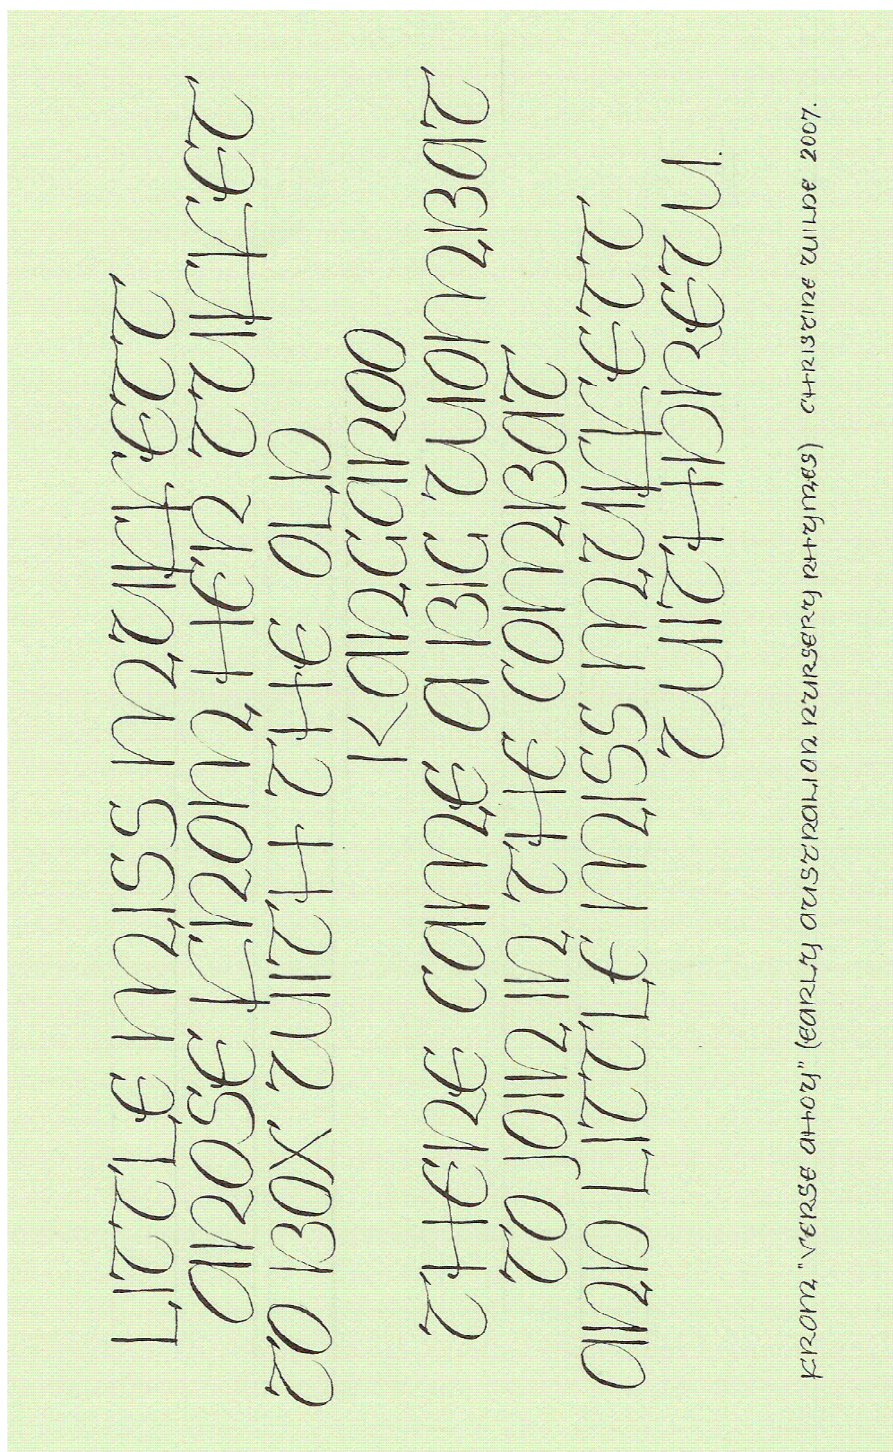 LITTLE MISS MUFFETT
AROSE FROM HER TUFFET
TO BOX WITH THE OLD
KANGAROO
THERE CAME A BIG WOMBAT
TO JOIN IN THE COMBAT
AND LITTLE MISS MUFFETT
WITHDREW.
FROM "VERSE AHOY" (EARLY AUSTRALIAN NURSERY RHYMES) CHRISTINE WILDE 2007.